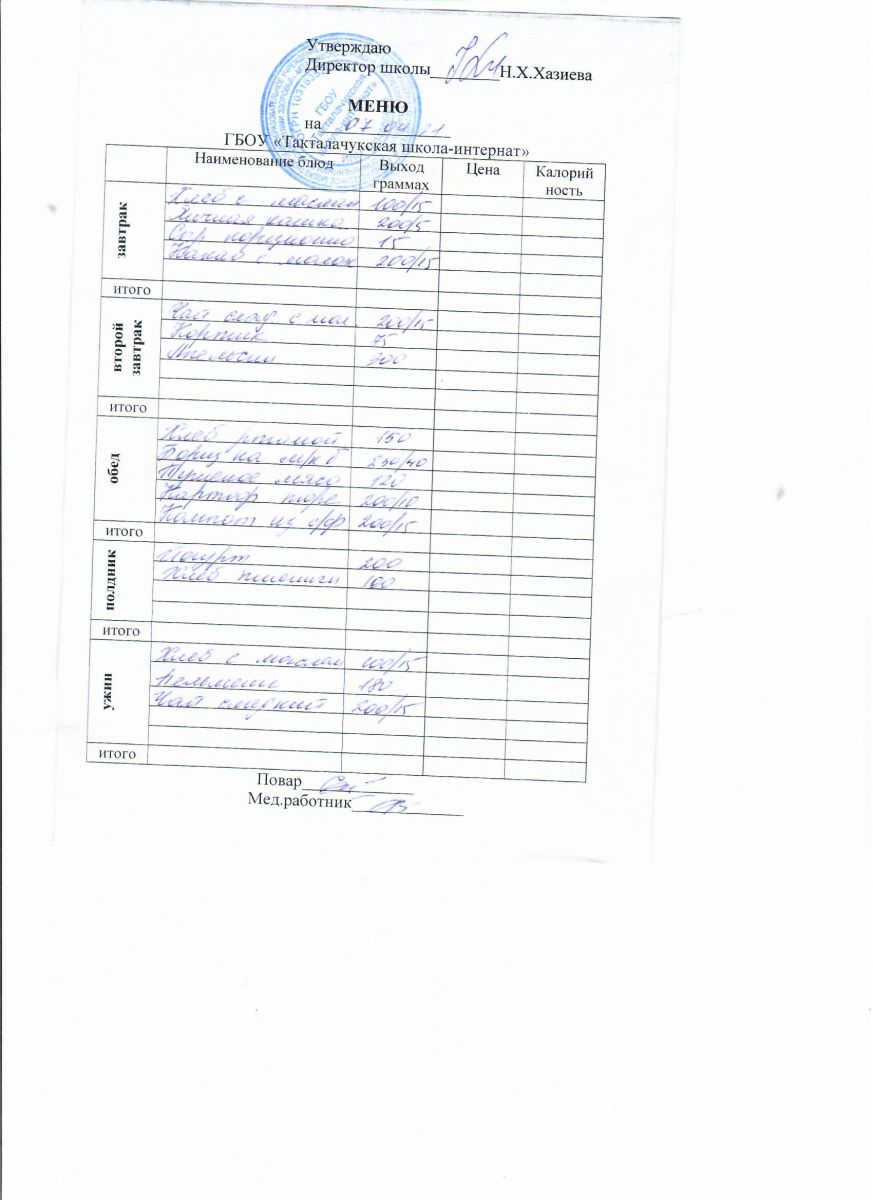 Утверждаю
Директор школы Н.Х.Хазиева
МЕНЮ
на 07 04 21
ГБОУ «Такталачукская школа-интернат»
Наименование блюд Выход граммах Цена Калорий ность
завтрак
Хлеб с маслом 100/15
Ячная кашка 200/5
Сыр порционно 15
Какао с молок 200/15
итого
второй завтрак
Чай слад с мол. 200/15
Коржик 75
Апельсин 200
итого
обед
Хлеб ржаной 150
Борщ на м/к б 250/40
Тушеное мясо 120
Картоф пюре 200/10
Компот из с/ф 200/15
итого
полдник
Йогурт 200
Хлеб пшенич 100
итого
ужин
Хлеб с маслом 100/15
Пельмени 180
Чай сладкий 200/15
итого
Повар
Мед.работник